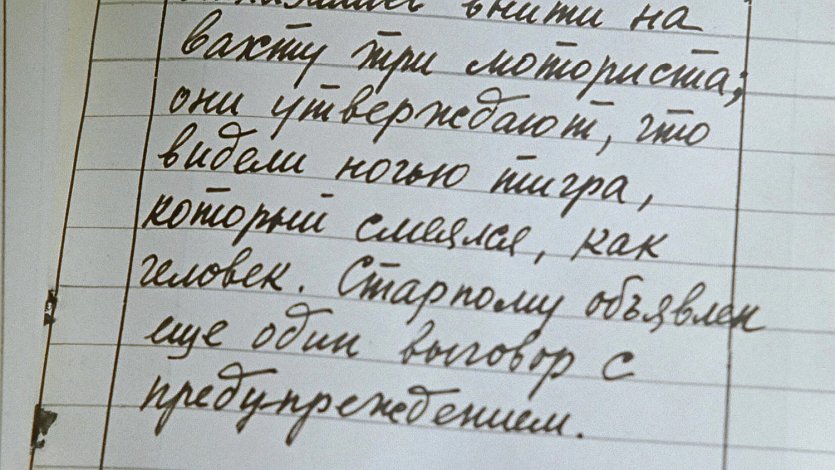 выйти на
вахту три моториста;
они утверждают, что
видели ночью тигра,
который смеялся, как
человек. Старпому объявлен
еще один выговор с
предупреждением.